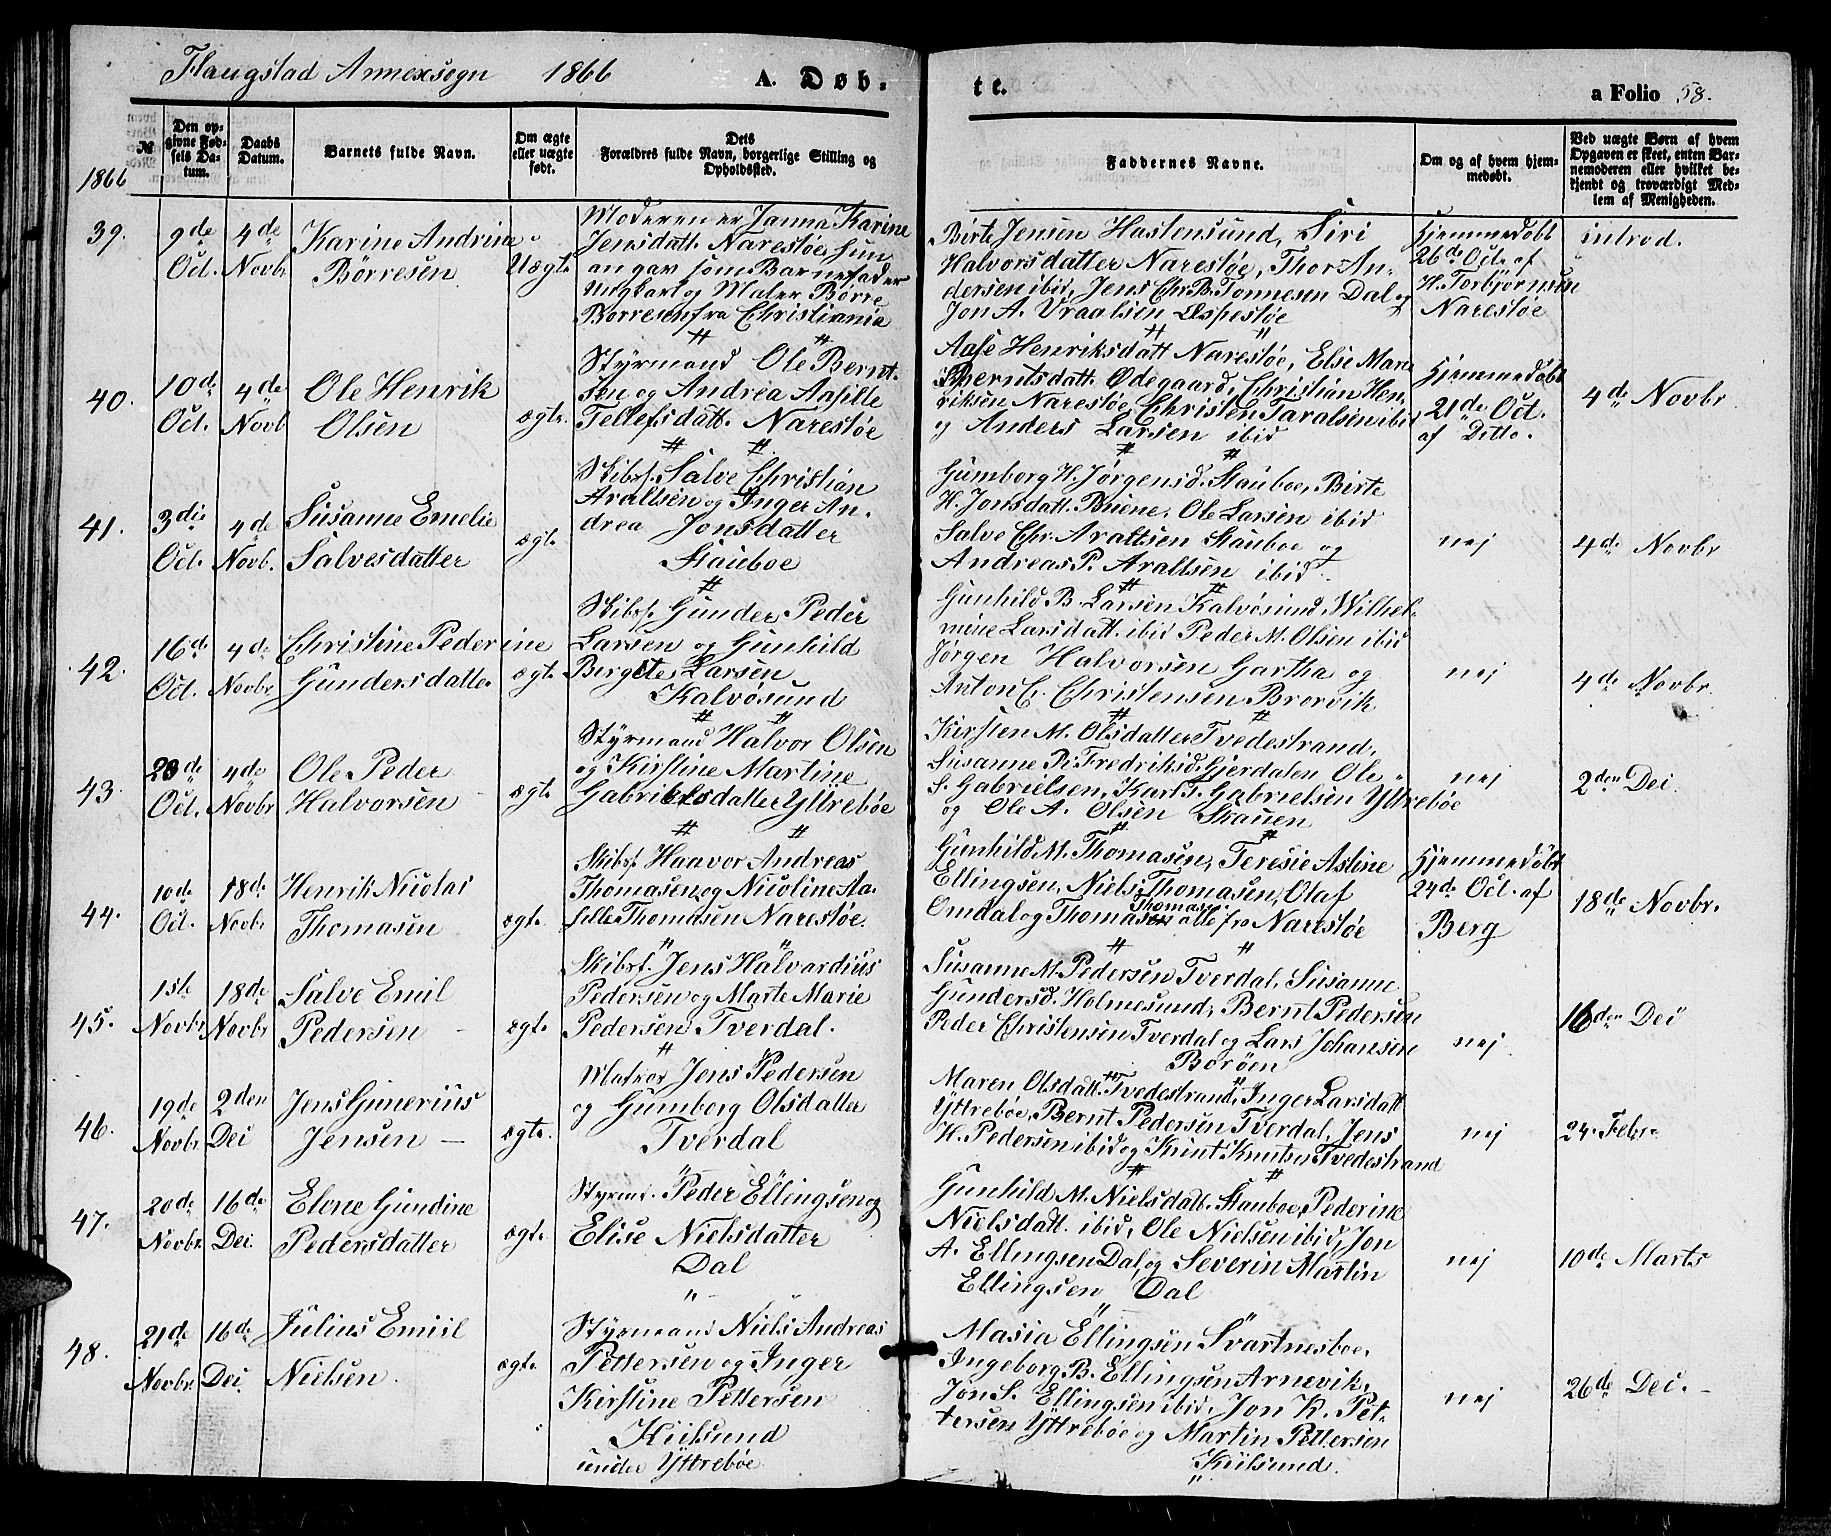 Flaugstad Annexsogn 1866 A. Døb-
te. a Folio 58.
1866
№
Den op-
givne Fød-
sels Da-
tum.
Daabs
Datum.
Barnets fulde Navn.
Om ægte
eller uægte
født.
Dets
Forældres fulde Navn, borgerlige Stilling og
Opholdssted.
Faddernes Navne.
Om og af hvem hjem-
medøbt.
Ved uægte Børn af hvem
Opgaven er skeet, enten Bar-
nemoderen eller hvilket be-
kjendt og troværdigt Med-
lem af Menigheden.
39.
9de
Oct.
4de
Novbr
Karine Andrine
Börresen
Uægte
Moderen er Janna Karine
Jensdatt. Narestøe, hun
angav som Barnefader
Ungkarl og Maler Börre
Börresen fra Christiania
Birte Jensen Hastensund, Siri
Halvorsdatter Narestøe, Thor An-
dersen ibid, Jens Chr. B. Tonnesen Dal og
Jon A. Vraalsen Espestøe
Hjemmedøbt
26de Oct. af
H. Torbjørnsen
Narestøe
introd.
40.
10de
Oct.
4de
Novb
Ole Henrik
Olsen
ægte.
Styrmand Ole Bernt-
sen og Andrea Aasille
Tellefsdatt. Narestøe
Aase Henriksdatt Narestøe, Else Mare
Berntsdatt. Ødegaard, Christian Hen-
riksen Narestøe, Christen Taralsen ibid
og Anders Larsen ibid
Hjemmedøbt
21de Oct.
af Ditto.
4de Novbr
41.
3die
Oct.
4de
Novb.
Susanne Emelie
Salvesdatter
ægte
Skibsf. Salve Christian
Araltsen og Inger An-
drea Jonsdatter
Stauboe
Gumborg H. Jørgensd. Stauboe, Birte
H. Jonsdatt. Buene, Ole Larsen ibid
Salve Chr. Araltsen Stauboe og
Andreas P. Araltsen ibid.
nej
4de Novbr
42.
16de
Oct.
4de
Novbr
Christine Pederine
Gundersdatter
ægte
Skibsf. Gunder Peder
Larsen og Gunhild
Birgite Larsen
Kalvøsund
Gunhild B. Larsen Kalvøsund, Wilhel-
mine Larsdatt. ibid Peder M. Olsen ibid
Jørgen Halvorsen Gartha og
Anton C. Christensen Brorvik
nej
4de Novbr.
43.
23de
Oct.
4de
Novbr
Ole Peder
Halvorsen
ægte
Styrmand Halvor Olsen
og Kirstine Martine
Gabrielsdatter Yttrebøe
Kirsten M. Olsdatter Tvedestrand,
Susanne P. Fredriksd. Gjerdalen Ole
S. Gabrielsen, Karl T. Gabrielsen Yttrebøe
og Ole A. Olsen Skauen
nej
2den Dec.
44.
10de
Oct.
18de
Novbr
Henrik Nicolai
Thomasen
ægte
Skibsf. Haavor Andreas
Thomasen og Nicoline Aa-
sille Thomasen Narestøe.
Gunhild M. Thomasen, Teresie Asline
Ellingsen, Niels Thomasen, Olaf
Omdal og Thomas Thomasen alle fra Narestøe
Hjemmedøbt
24de Oct. af
Berg
18de Novbr.
45.
1ste
Novbr
18de
Novbr
Salve Emil
Pedersen
ægte
Skibsf. Jens Halvardius
Pedersen og Marte Marie
Pedersen Tverdal.
Susanne M. Pedersen Tverdal, Susanne
Gundersd. Holmesund, Bernt Pedersen
Peder Christensen Tverdal og Lars Johansen
Borøen
nej
16den Dec
46.
19de
Novbr
2den
Dec
Jens Gunerius
Jensen
ægte.
Matros Jens Pedersen
og Gumborg Olsdatter
Tverdal
Maren Olsdatt. Tvedestrand, Inger Larsdatt
Yttrebøe, Bernt Pedersen Tverdal, Jens
H. Pedersen ibid og Knut Knutsen Tvedestrand
nej
24. Febr.
47.
20de
Novbr
16de
Dec.
Elene Gundine
Pedersdatter
ægte.
Styrm. Peder Ellingsen og
Elise Nielsdatter
Dal
Gunhild M. Nielsdatt. Stauboe, Pederine
Nielsdatt. ibid, Ole Nielsen ibid, Jon
A. Ellingsen Dal, og Severin Martin
Ellingsen Dal
nej
10de Marts
48.
21de
Novbr.
16de
Dec.
Julius Emiil
Nielsen
ægte
Styrmand Niels Andreas
Pettersen og Inger
Kirstine Pettersen
Kiilsund
under Yttrebøe
Masia Ellingsen Svartnesboe,
Ingeborg B. Ellingsen Arnevik,
Jon S. Ellingsen ibid, Jon K. Pet-
tersen Yttrebøe og Martin Pettersen
Kiilsund.
nej
26de Dec.